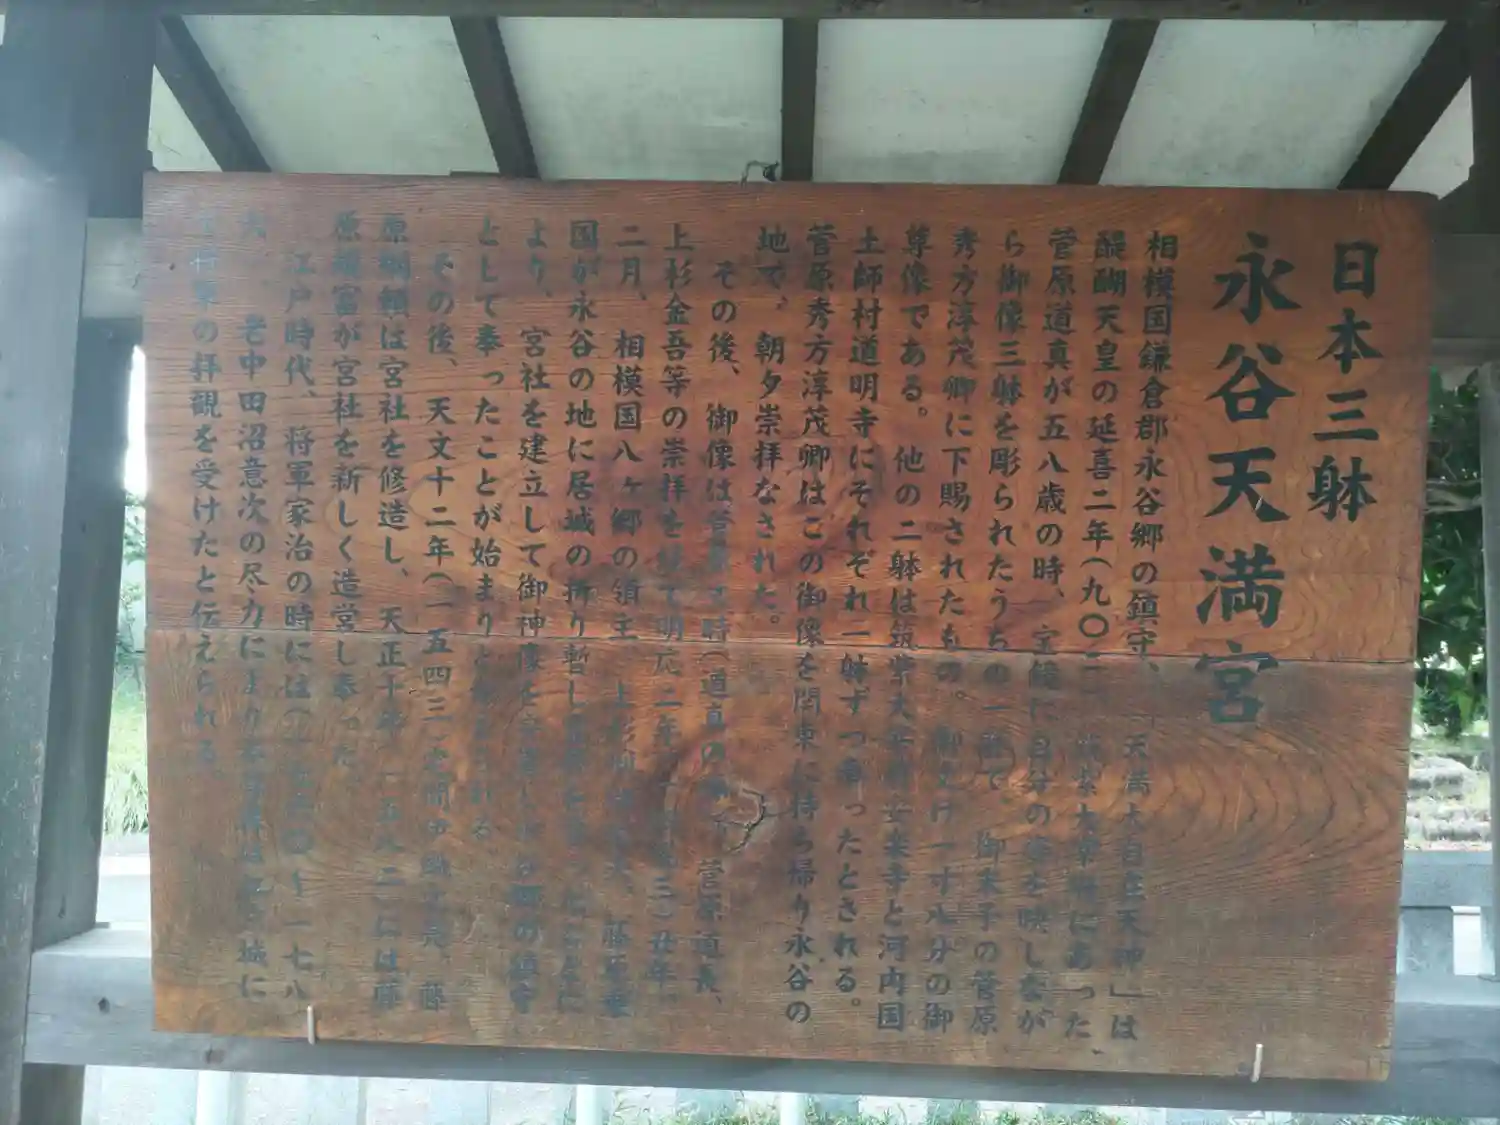 日本三躰
永谷天満宮
相模国鎌倉郡永谷郷の鎮守、「天満大自在天神」は
醍醐天皇の延喜二年(九〇二)筑紫太宰府にあった
菅原道真が五八歳の時、宝鏡に自分の姿を映しなが
ら御像三躰を彫られたうちの一躰で、御末子の菅原
秀方淳茂卿に下賜されたもの。御丈け一寸八分の御
尊像である。他の二躰は筑紫太宰府安楽寺と河内国
土師村道明寺にそれぞれ一躰ずつ奉ったとされる。
菅原秀方淳茂卿はこの御像を関東に持ち帰り永谷の
地で、朝夕崇拝なされた。
その後、御像は菅原 時(道真の 菅原道長、
上杉金吾等の崇拝を経て明応二年 三)丑年、
二月、相模国八ヶ郷の領主 上杉 藤原乗
国が永谷の地に居城の折り
より、宮社を建立して御神像を の鎮守
として奉ったことが始まりと される
その後、天文十二年(一五四三) 藤
原綱頼は宮社を修造し、天正十年(一五八二)には藤
原頼富が宮社を新しく造営し奉った
江戸時代、将軍家治の時には(一七六〇〜一七八
六)、老中田沼意次の尽力により 城に
て将軍の拝観を受けたと伝えられる。